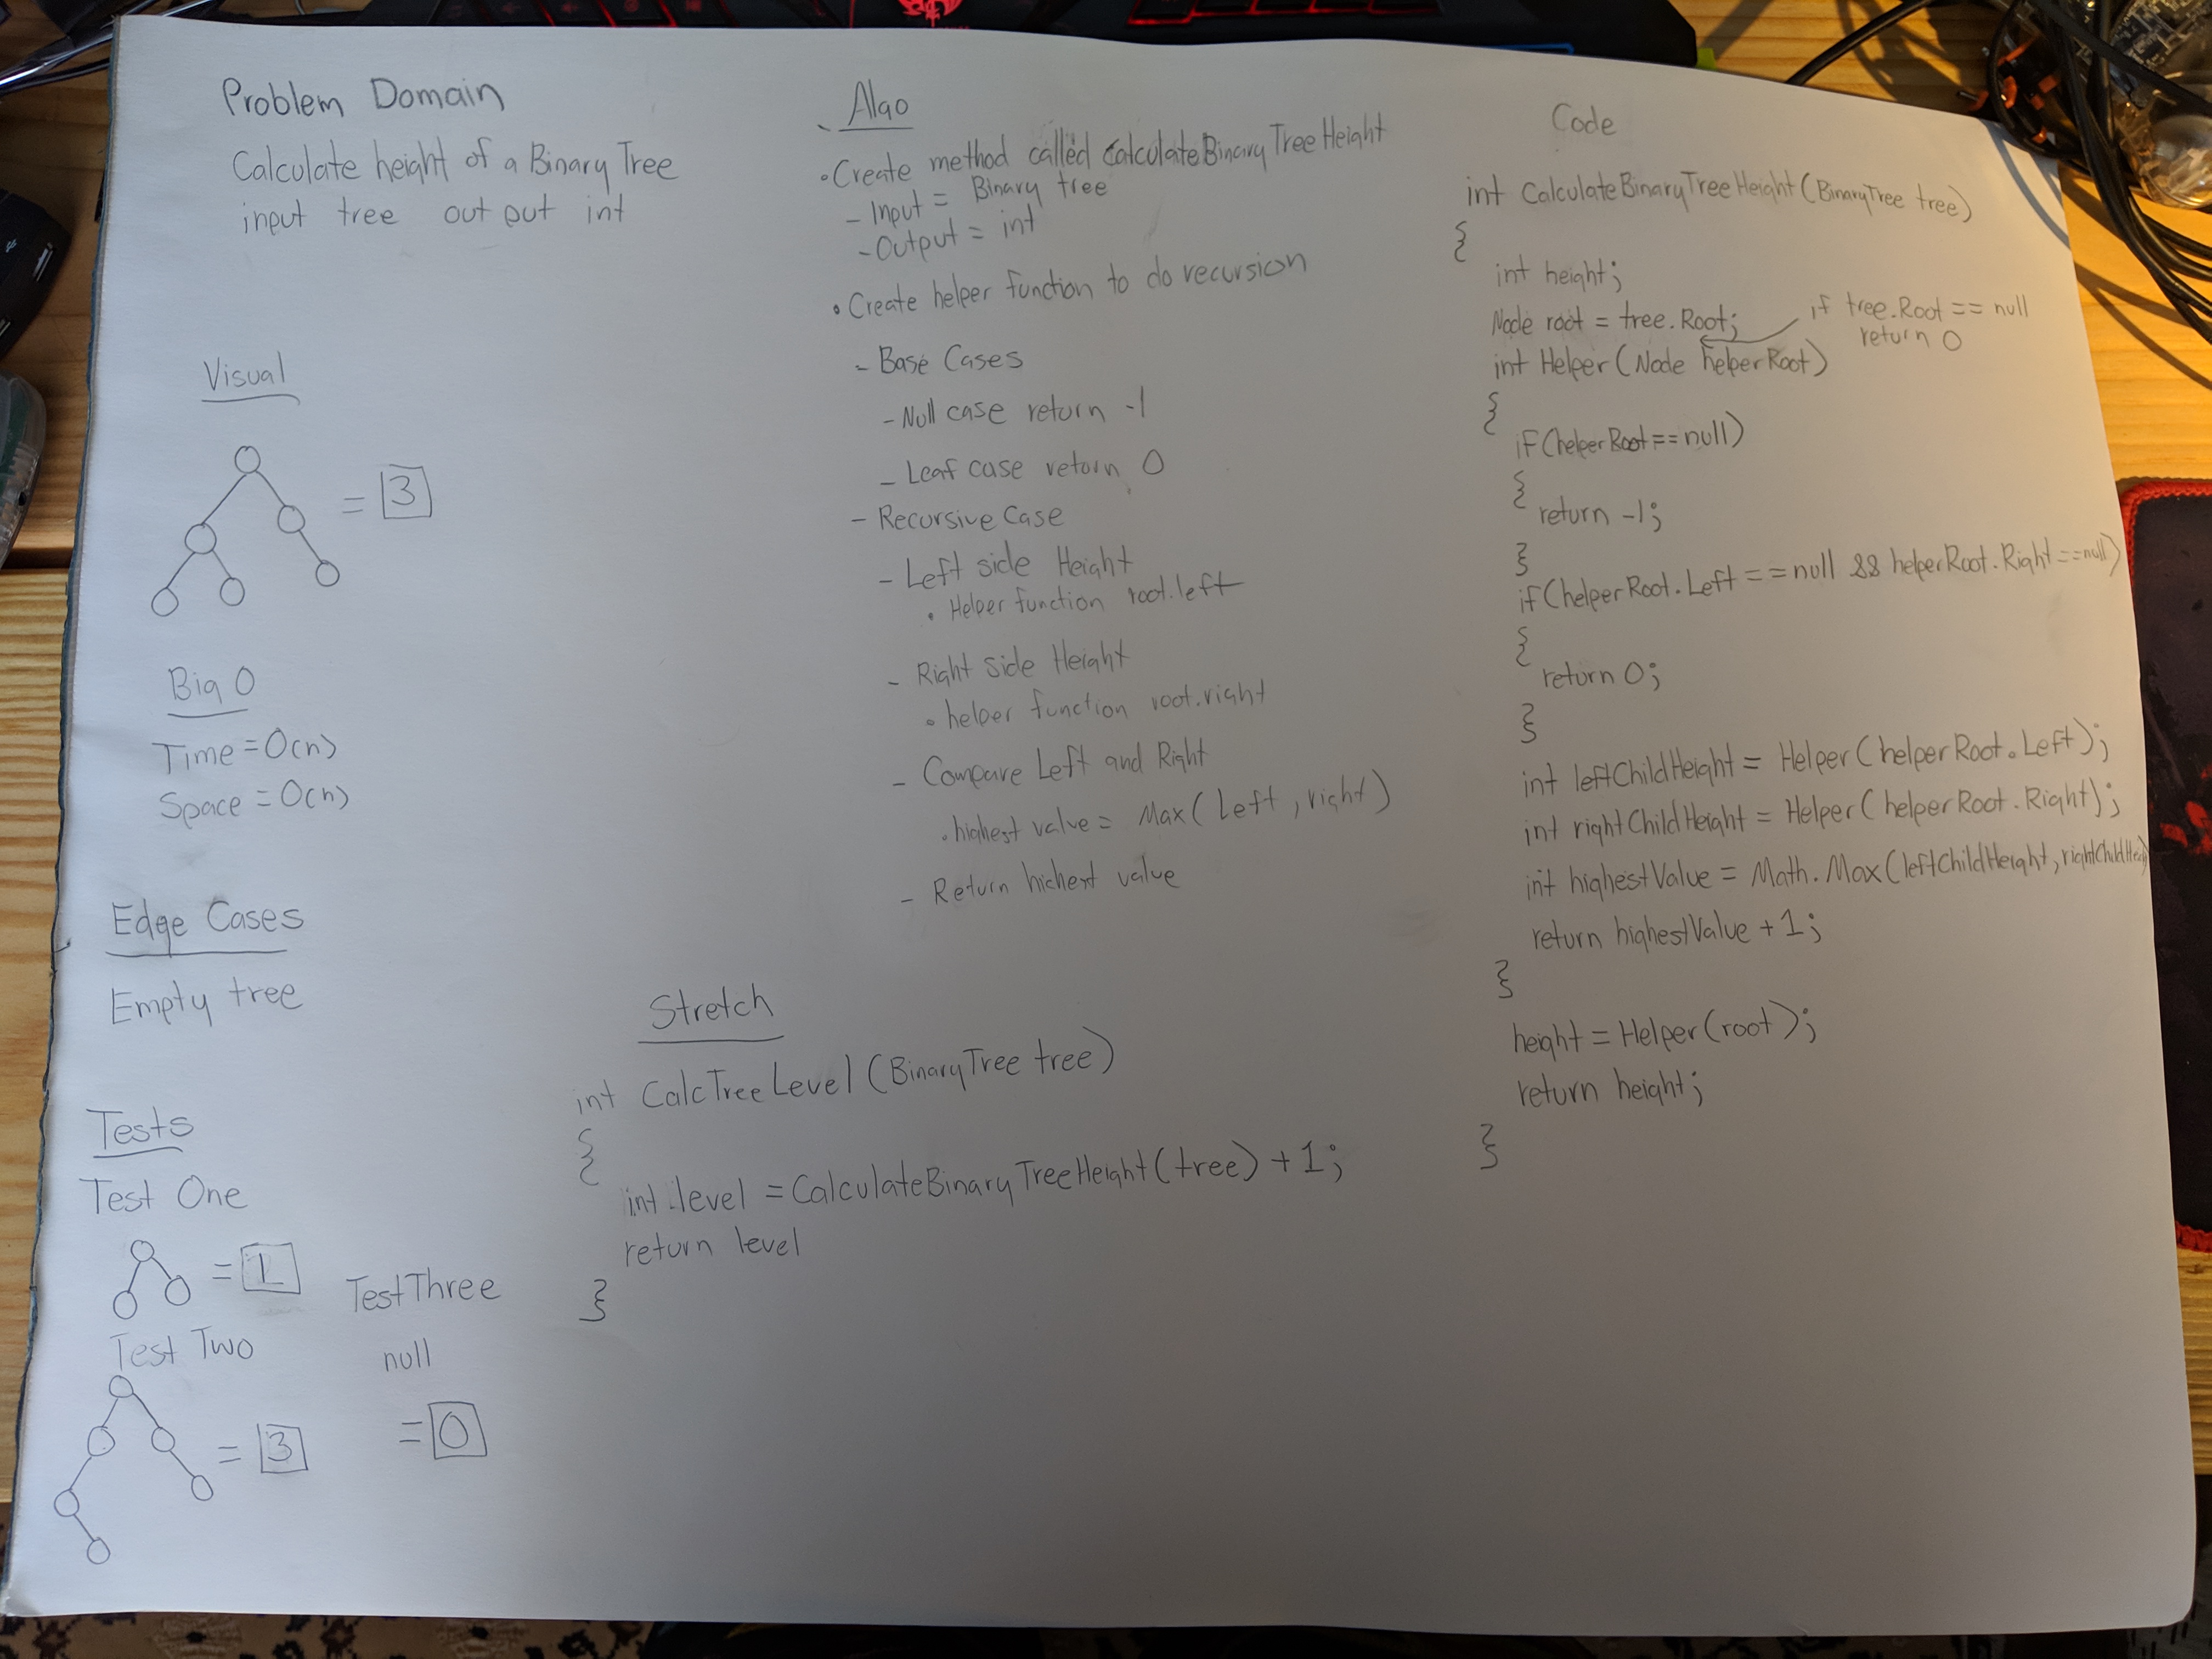 Problem Domain
Calculate height of a Binary Tree
input tree out put int
Visual
= 3
Big O
Time = O(n)
Space = O(n)
Edge Cases
Empty tree
Tests
Test One
= 1
Test Two
= 3
Test Three
null
= 0
Algo
• Create method called CalculateBinaryTreeHeight
- Input = Binary tree
- Output = int
• Create helper function to do recursion
- Base Cases
- Null case return -1
- Leaf case return 0
- Recursive Case
- Left side Height
• Helper function root.left
- Right side Height
• helper function root.right
- Compare Left and Right
• highest value = Max(Left, right)
- Return highest value
Stretch
int CalcTreeLevel(BinaryTree tree)
{
int level = CalculateBinaryTreeHeight(tree) + 1;
return level
}
Code
int CalculateBinaryTreeHeight(BinaryTree tree)
{
int height;
Node root = tree.Root;
if tree.Root == null
return 0
int Helper(Node helperRoot)
{
if(helperRoot == null)
{
return -1;
}
if(helperRoot.Left == null && helperRoot.Right == null)
{
return 0;
}
int leftChildHeight = Helper(helperRoot.Left);
int rightChildHeight = Helper(helperRoot.Right);
int highestValue = Math.Max(leftChildHeight, rightChildHeigh)
return highestValue + 1;
}
height = Helper(root);
return height;
}